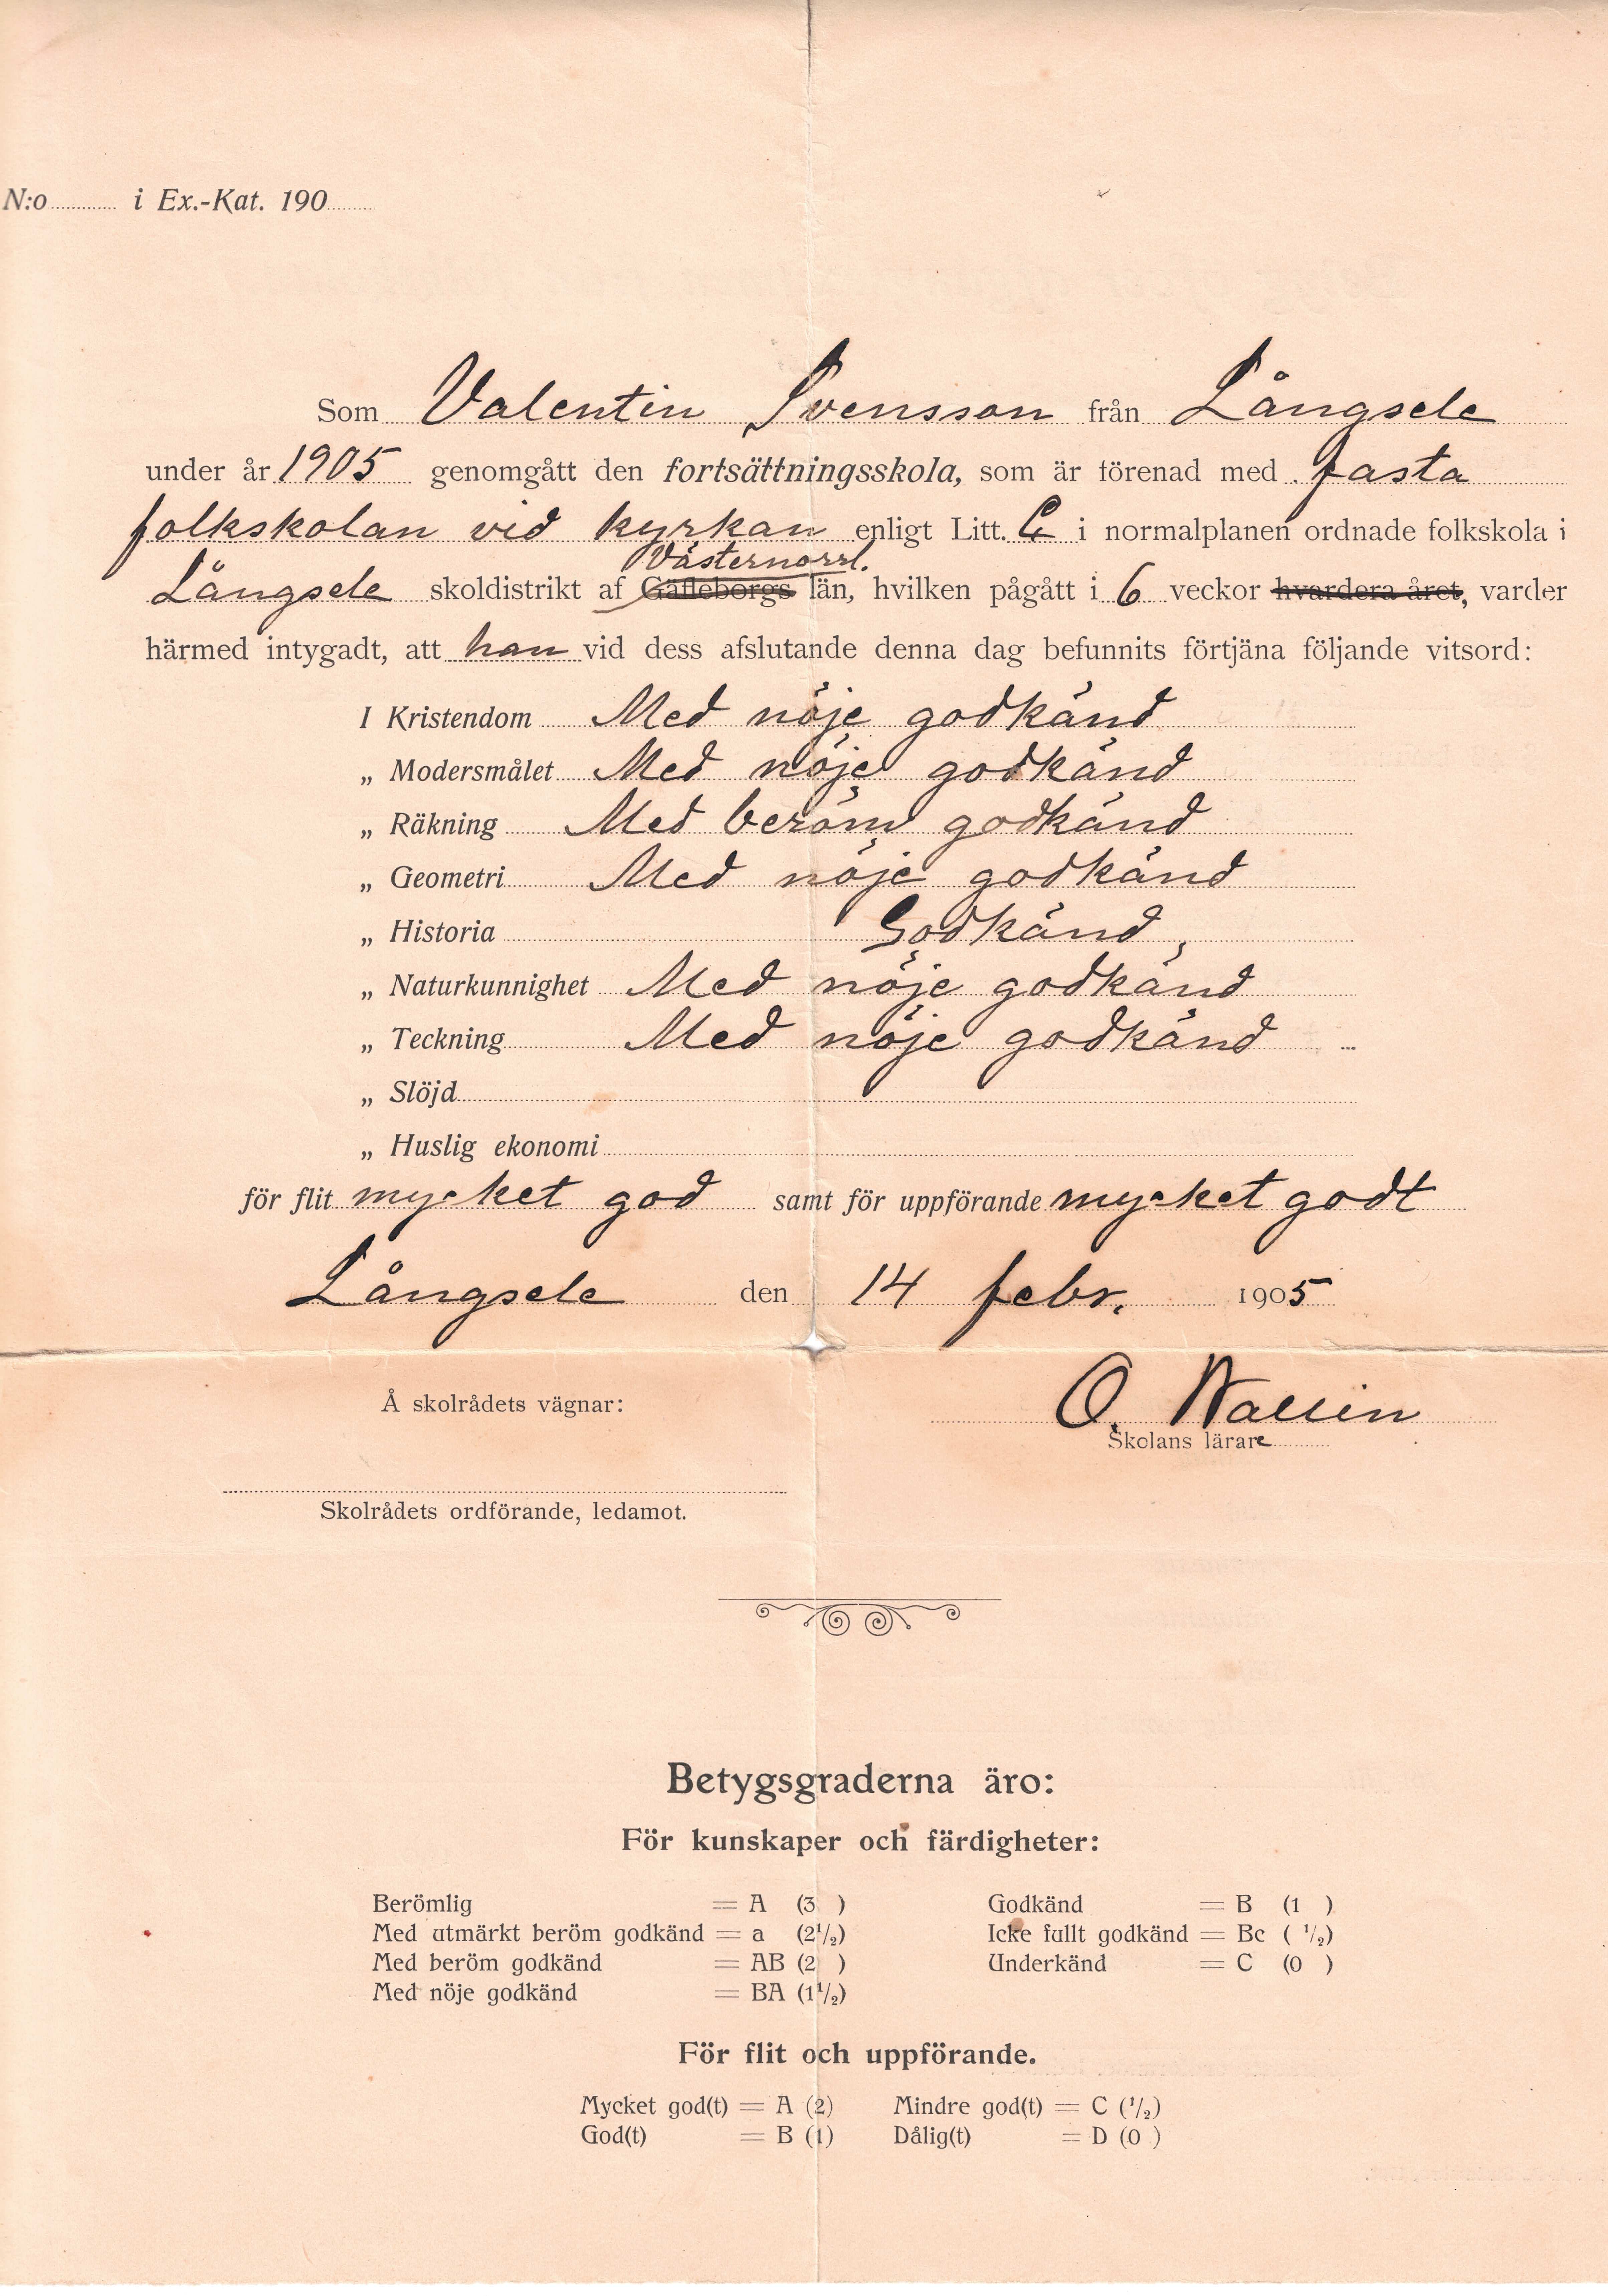 N:o i Ex.-Kat. 190
Som Valentin Svensson från Långsele
under år 1905 genomgått den fortsättningsskola, som är förenad med fasta
folkskolan vid kyrkan enligt Litt. i normalplanen ordnade folkskola i
Västernorrl.
Långsele skoldistrikt af Gäfleborgs län, hvilken pågått i 6 veckor hvardera året, varder
härmed intygadt, att han vid dess afslutande denna dag befunnits förtjäna följande vitsord:
I Kristendom Med nöje godkänd
„ Modersmålet Med nöje godkänd
„ Räkning Med beröm godkänd
„ Geometri Med nöje godkänd
„ Historia Godkänd
„ Naturkunnighet Med nöje godkänd
„ Teckning Med nöje godkänd
„ Slöjd
„ Huslig ekonomi
för flit mycket god samt för uppförande mycket godt
Långsele den 14 febr. 1905
O. Wallin
Å skolrådets vägnar:
Skolans lärare
Skolrådets ordförande, ledamot.
Betygsgraderna äro:
För kunskaper och färdigheter:
Berömlig = A (3 ) Godkänd = B (1 )
Med utmärkt beröm godkänd = a (2 1/2) Icke fullt godkänd = Bc ( 1/2)
Med beröm godkänd = AB (2 ) Underkänd = C (0 )
Med nöje godkänd = BA (1 1/2)
För flit och uppförande.
Mycket god(t) = A (2) Mindre god(t) = C (1/2)
God(t) = B (1) Dålig(t) = D (0 )